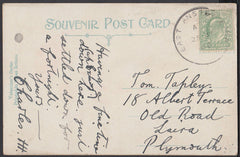 SOUVENIR POST CARD
EAST ANS
Having a fine time
down here quite
settled down for
a fortnight.
Yours
Charles. H.
Tom. Tapley.
18 Albert Terrace
Old Road
Laira
Plymouth.